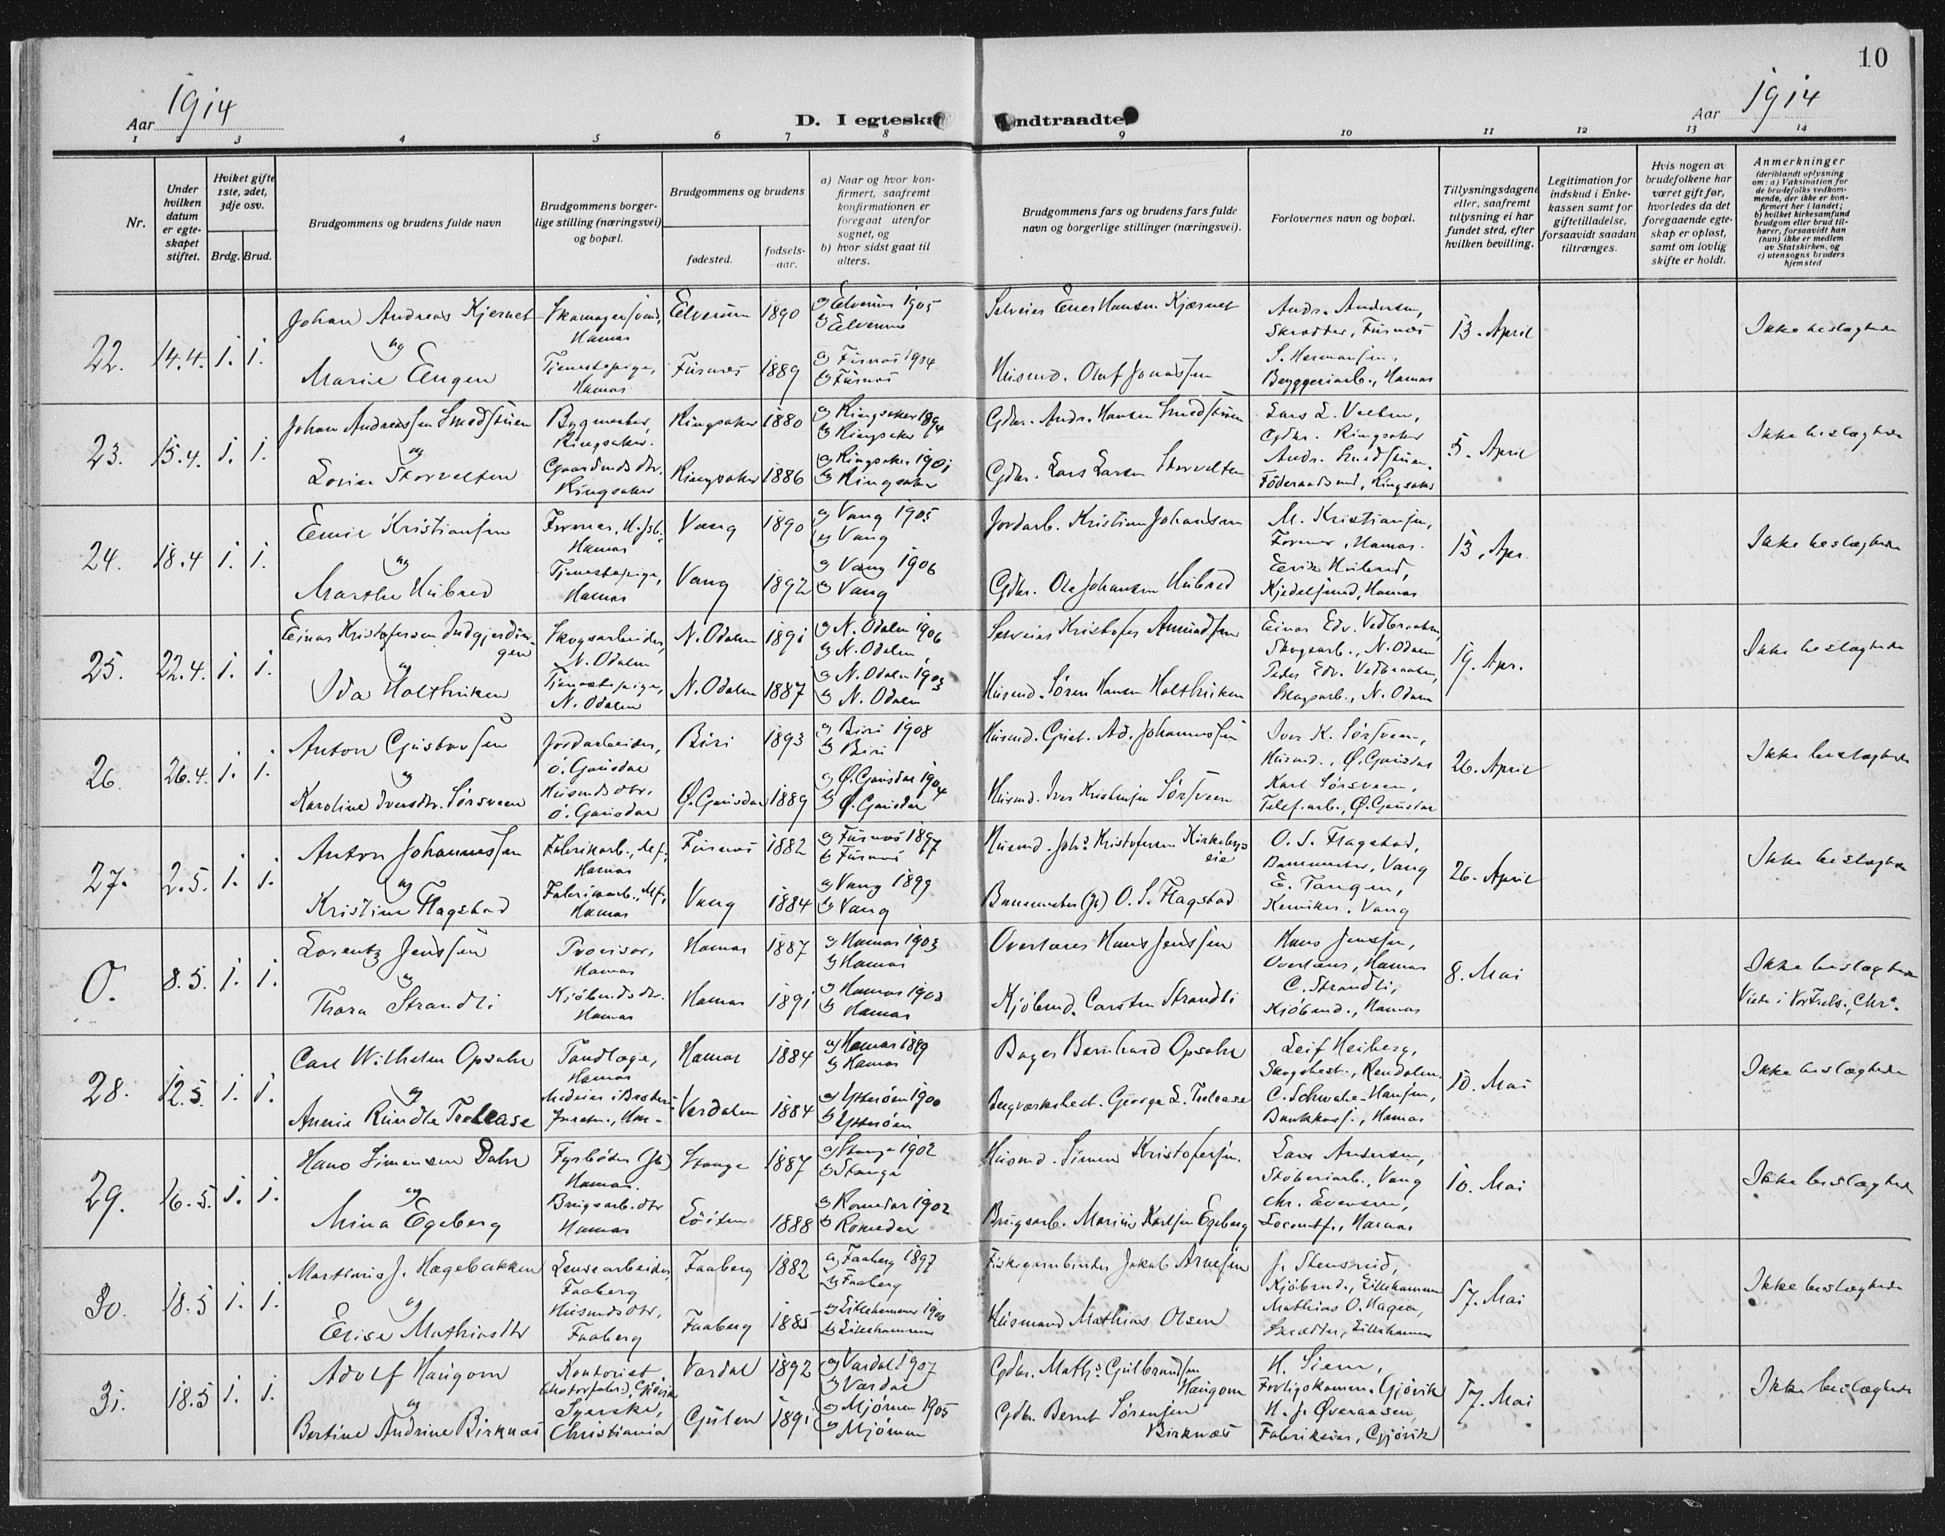 10
Aar 1914
D. I egteska
ndtraadte.
Aar 1914
1 2 3 4 5 6 7 8 9 10 11 12 13 14
Nr.
Under hvilken datum er egteskapet stiftet.
Hviket gifte 1ste, 2det, 3dje osv.
Brdg. Brud.
Brudgommens og brudens fulde navn
Brudgommens borgerlige stilling (næringsvei) og bopæl.
Brudgommens og brudens
fødested.
fødselsaar.
a) Naar og hvor konfirmert, saafremt konfirmationen er foregaat utenfor sognet, og
b) hvor sidst gaat til alters.
Brudgommens fars og brudens fars fulde navn og borgerlige stillinger (næringsvei).
Forlovernes navn og bopæl.
Tillysningsdagene eller, saafremt tillysning ei har fundet sted, efter hvilken bevilling.
Legitimation for indskud i Enkekassen samt for giftetilladelse, forsaavidt saadan tiltrænges.
Hvis nogen av brudefolkene har været gift før, hvorledes da det foregaaende egteskap er opløst, samt om lovlig skifte er holdt.
Anmerkninger
(deriblandt oplysning om: a) Vaksination for de brudefolks vedkommende, der ikke er konfirmert her i landet; b) hvilket kirkesamfund brudgom eller brud tilhører, forsaavidt han (hun) ikke er medlem av Statskirken, og c) utensogns bruders hjemsted
22. 14.4. 1. 1. Johan Andreas Kjernet Skomagersvend, Hamar Elverum 1890 a) Elverum 1905 b) Elverum Selveier Einer Hansen Kjærnet Andr. Andersen, Skrædder, Furnes 13. April Ikke beslægtede
og
Marie Engen Tjenestepige, Hamar Furnes 1889 a) Furnes 1904 b) Furnes Husmd. Oluf Jonassen S. Hermansen, Bryggeriarb., Hamar
23. 15.4. 1. 1. Johan Andreassen Smedstuen Bygmester, Ringsaker. Ringsaker 1880 a) Ringsaker 1894 b) Ringsaker Gdbr. Andr. Hansen Smedstuen Lars L. Velten, Gdbr. Ringsaker 5. April Ikke beslægtede
og
Lovise Storvelten Gaardmds dtr. Ringsaker Ringsaker 1886 a) Ringsaker 1901 b) Ringsaker Gdbr. Lars Larsen Storvelten Andr. Smedstuen. Föderaadsmd, Ringsaker
24. 18.4 1. 1. Emil Kristiansen Former, H. Jsb. Hamar Vang 1890 a) Vang 1905 b) Vang Jordarb. Kristian Johansen M. Kristiansen, Former, Hamar. 13. Apr. Ikke beslægtede
og
Marthe Hubred Tjenestepige, Hamar Vang 1892 a) Vang 1906 b) Vang Gdbr. Ole Johansen Hubred Eerik Hubred, Kjedelsmed, Hamar
25. 22.4. 1. 1. Einar Kristofersen Indgjerdingen Skogsarbeider, N. Odalen N. Odalen 1891 a) N. Odalen 1906 b) N. Odalen Selveier Kristofer Amundsen Einar Edv. Vedbraaten, Skogsarb., N. Odalen 19. Apr. Ikke beslægtede
og
Ida Holthviken Tjenestepige, N. Odalen N. Odalen 1887 a) N. Odalen 1903 b) N. Odalen Husmd. Søren Hansen Holthviken Peder Edv. Vedbraaten, Skogsarb., N. Odalen
26. 26.4. 1. 1. Anton Gustavsen Jordarbeider, Ö. Gausdal Biri 1893 a) Biri 1908 b) Biri Husmd. Gust. Ad. Johannessen Iver K. Sørsveen, Husmd., Ø. Gausdal 26. April Ikke beslægtede
og
Karoline Iversdtr. Sørsveen Husmds dtr. Ö. Gausdal Ø. Gausdal 1889 a) Ø. Gausdal 1904 b) Ø. Gausdal Husmd. Iver Kristensen Sørsveen Karl Sørsveen, Telef.arb., Ø. Gausdal
27. 2.5. 1. 1. Anton Johannessen Fabrikarb., Hamar Furnes 1882 a) Furnes 1897 b) Furnes Husmd. Johs Kristofersen Kirkebyeie O. S. Flagstad, Banemester, Vang 26. April Ikke beslægtede
og
Kristine Flagstad Fabrikarb., Hamar Vang 1884 a) Vang 1899 b) Vang Banemester (Jb) O. S. Flagstad E. Tangen, Kemiker, Vang
O. 8.5. 1. 1. Lorentz Jenssen Provisor, Hamar Hamar 1887 a) Hamar 1903 b) Hamar Overlærer Hans Jenssen Hans Jenssen, Overlærer, Hamar 8. Mai Ikke beslægtede
og
Thora Strandli Kjöbmds dtr. Hamar Hamar 1891 b) Hamar Kjöbmd. Carsten Strandli C. Strandli, Kjöbmd., Hamar Viede i Vor Frels., Chra.
28. 12.5. 1. 1. Carl Wilhelm Opsahl Tandlæge, Hamar Hamar 1884 a) Hamar 1899 b) Hamar Bager Bernhard Opsahl Leif Heiberg, Skogbest., Rendalen. 10. Mai Ikke beslægtede
og
Annie Rundle Trelease Verdalen 1884 a) Ytterøen 1900 b) Ytterøen Bergværksbest. George S. Trelease C. Schwabe-Hansen, Bankkass., Hamar
29. 16.5. 1. 1. Hans Simensen Dahl Fyrbøder (Jb) Hamar. Stange 1887 a) Stange 1902 b) Stange Husmd. Simen Kristofersen. Lars Andersen, Skoberiarb., Vang 10. Mai Ikke beslægtede
og
Mina Egeberg Brugsarb.dtr Hamar Löiten 1888 a) Romedal 1902 b) Romedal Brugsarb. Marius Karlsen Egeberg Chr. Evensen, Locomtf., Hamar
30. 18.5 1. 1. Martinus J. Hagebakken Lensearbeider, Faaberg Faaberg 1882 a) Faaberg 1897 b) Faaberg Fiskegarnbinder Jakob Arnesen J. Stensrud, Kjöbmd., Lillehammer 17. Mai Ikke beslægtede
og
Elise Mathiasdtr Husmds dtr, Faaberg Faaberg 1885 a) Lillehammer 1900 b) Lillehammer Husmand Mathias Olsen Mathias O. Hagen, Skrædder, Lillehammer
31. 18.5 1. 1. Adolf Haugom Kontorist, Gjövik Vardal 1892 a) Vardal 1907 b) Vardal Gdbr. Maths Gulbrandsen Haugom H. Siem, Forligskomm. Gjövik 17. Mai Ikke beslægtede
og
Bertine Andrine Birknæs Syerske, Christiania Gulen 1891 a) Mjömen 1905 b) Mjömen Gdbr. Bernt Sørensen Birknæs H. J. Øveraasen, Fabrikeier, Gjövik